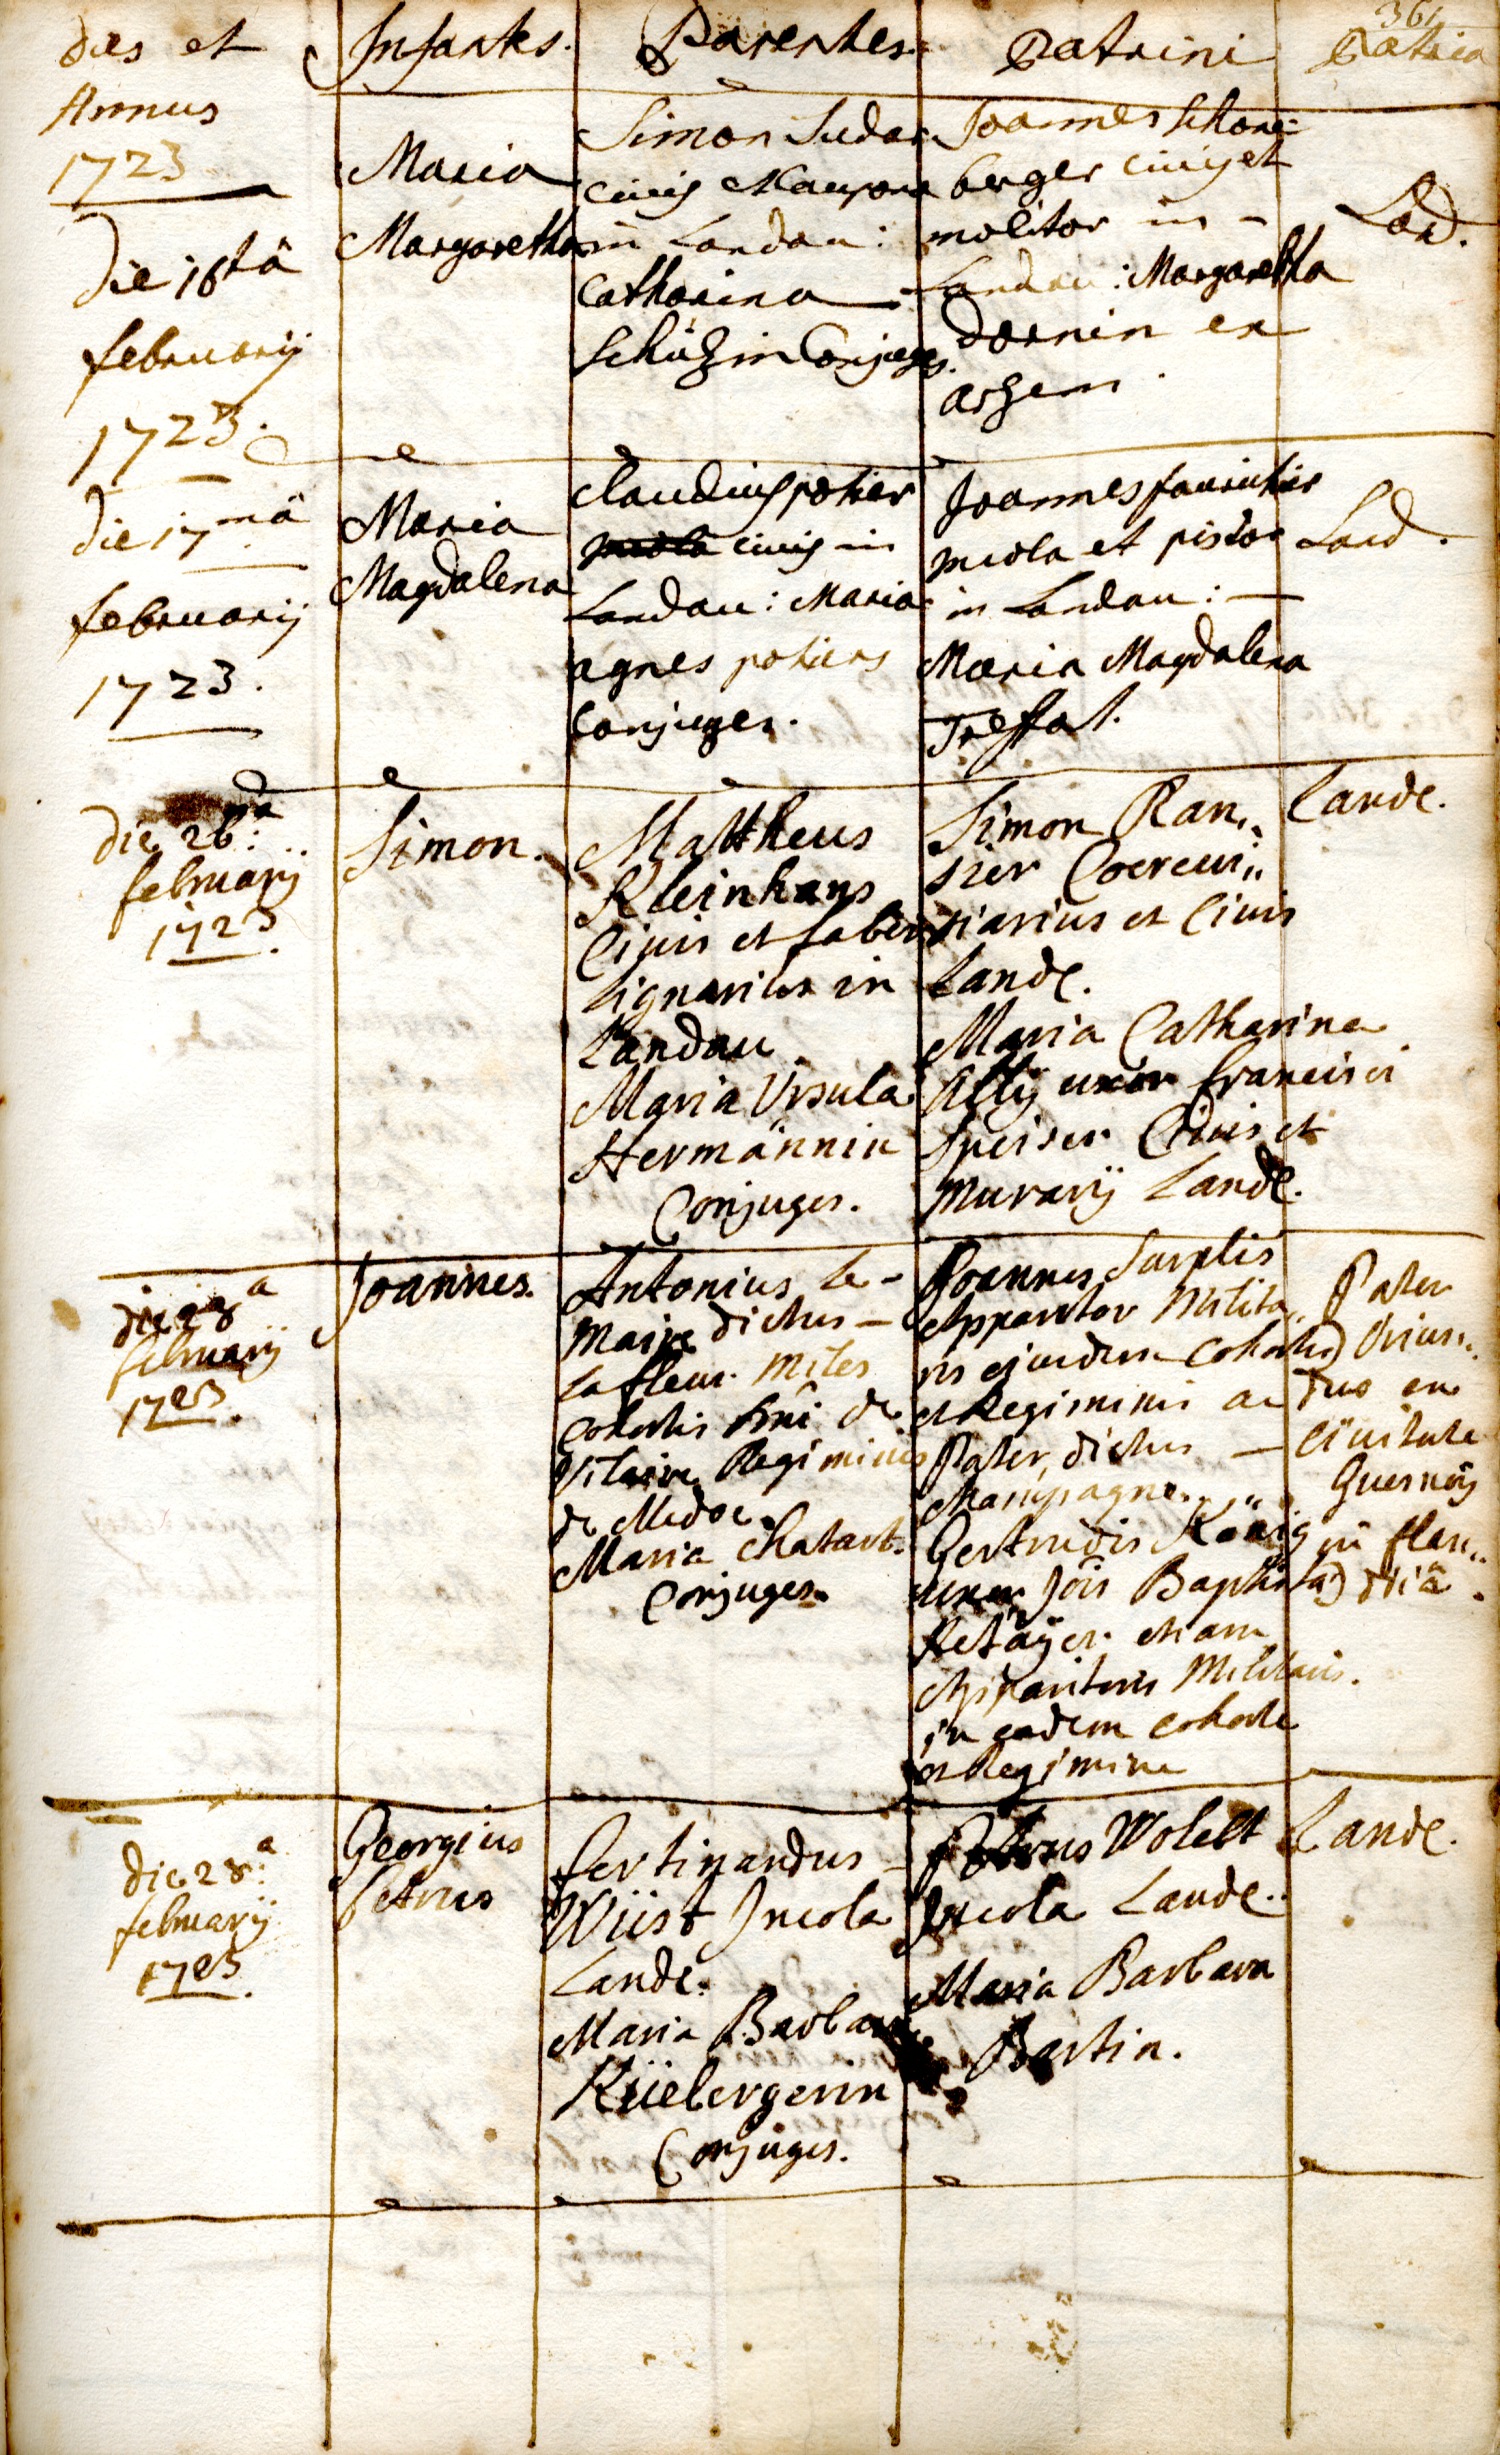 361
Dies et
Annus
1723
Infantes.
Parentes.
Patrini
Patria
die 16tâ
februarij
1723.
Maria
Margaretha
Simon Sudar
civis et Caupona
in Landau:
Catharina
Schüzin Conjuges.
Joannes Schöne=
berger civis et
molitor in -
Landau: Margaretha
Dornin ex
Land.
die 17mâ
februarij
1723.
Maria
Magdalena
Claudius potier
civis in
Landau: Maria
agnes potiers
Conjuges.
Joannes
incola et pistor
in Landau: —
Maria Magdalena
Treffat.
Land.
die 26:
februarij
1723.
Simon.
Mattheus
Kleinhans
Civis et faber
lignarius in
Landau
Maria Ursula
Hermännin
Conjuges.
Simon Ran,,
zier Coereui,,
siarius et Civis
Landę.
Maria Catharina
uxor francisci
Speiser Civis et
Murarij Landę.
Landę.
die 28a
februarij
1723.
Joannes.
Antonius le -
Maire dictus —
Lafleur. Miles
Cohortis Dni de
Vitaire Regiminis
de Medoc.
Maria Chatart.
Conjuges.
Joannes Surplis
Apparitor Milita,,
ris ejusdem Cohortis
et Regiminis ac
Pater, dictus —
Champagne.
Gertrudis König
uxor Jois Baptistæ
Retäyer etiam
Apparitoris Militaris.
in eadem cohorte
et Regimine
Pater
Oriun,,
dus ex
Civitate
Quesnoy
in flan,,
driâ.
die 28:a
februarij
1723.
Georgius
Petrus
fertinandus —
Wüst Incola
Landę.
Maria Barbara
Küebergerin
Conjuges.
Petrus Wolelt
Incola Landę.
Maria Barbara
Bartin.
Landę.